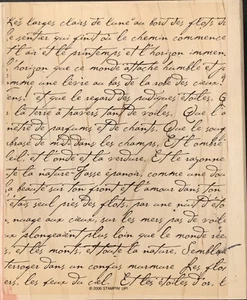 les larges clairs de lune au bord des flots d
le sentier qui finit où le chemin commence
Et l'air et le printemps et l'horizon immen
l'horizon que ce monde attache humble et
omme une lèvre au bas de la robe des cieux.
ens! et que le regard des pudiques étoiles. Q
la terre à travers tant de voiles. Que l'
nêtré de parfums et de chants. Que le souf
hrase de midi dans les champs. Et l'ombre
leil et l'onde et la verdure. Et le rayonne
te la nature Fasse épanoir, comme une dou
la beauté sur ton front et l'amour dans ton
étais seul près des flots, par une nuit d'éto
nuage aux cieux, sur les mers pas de voile
ux plongeaient plus loin que le monde rée
s, et les monts, et toute la nature, Semblaie
terroger dans un confus murmure Les flo
ers, les feux du ciel. Et les étoiles d'or, l
© 2006 STAMPIN' UP!